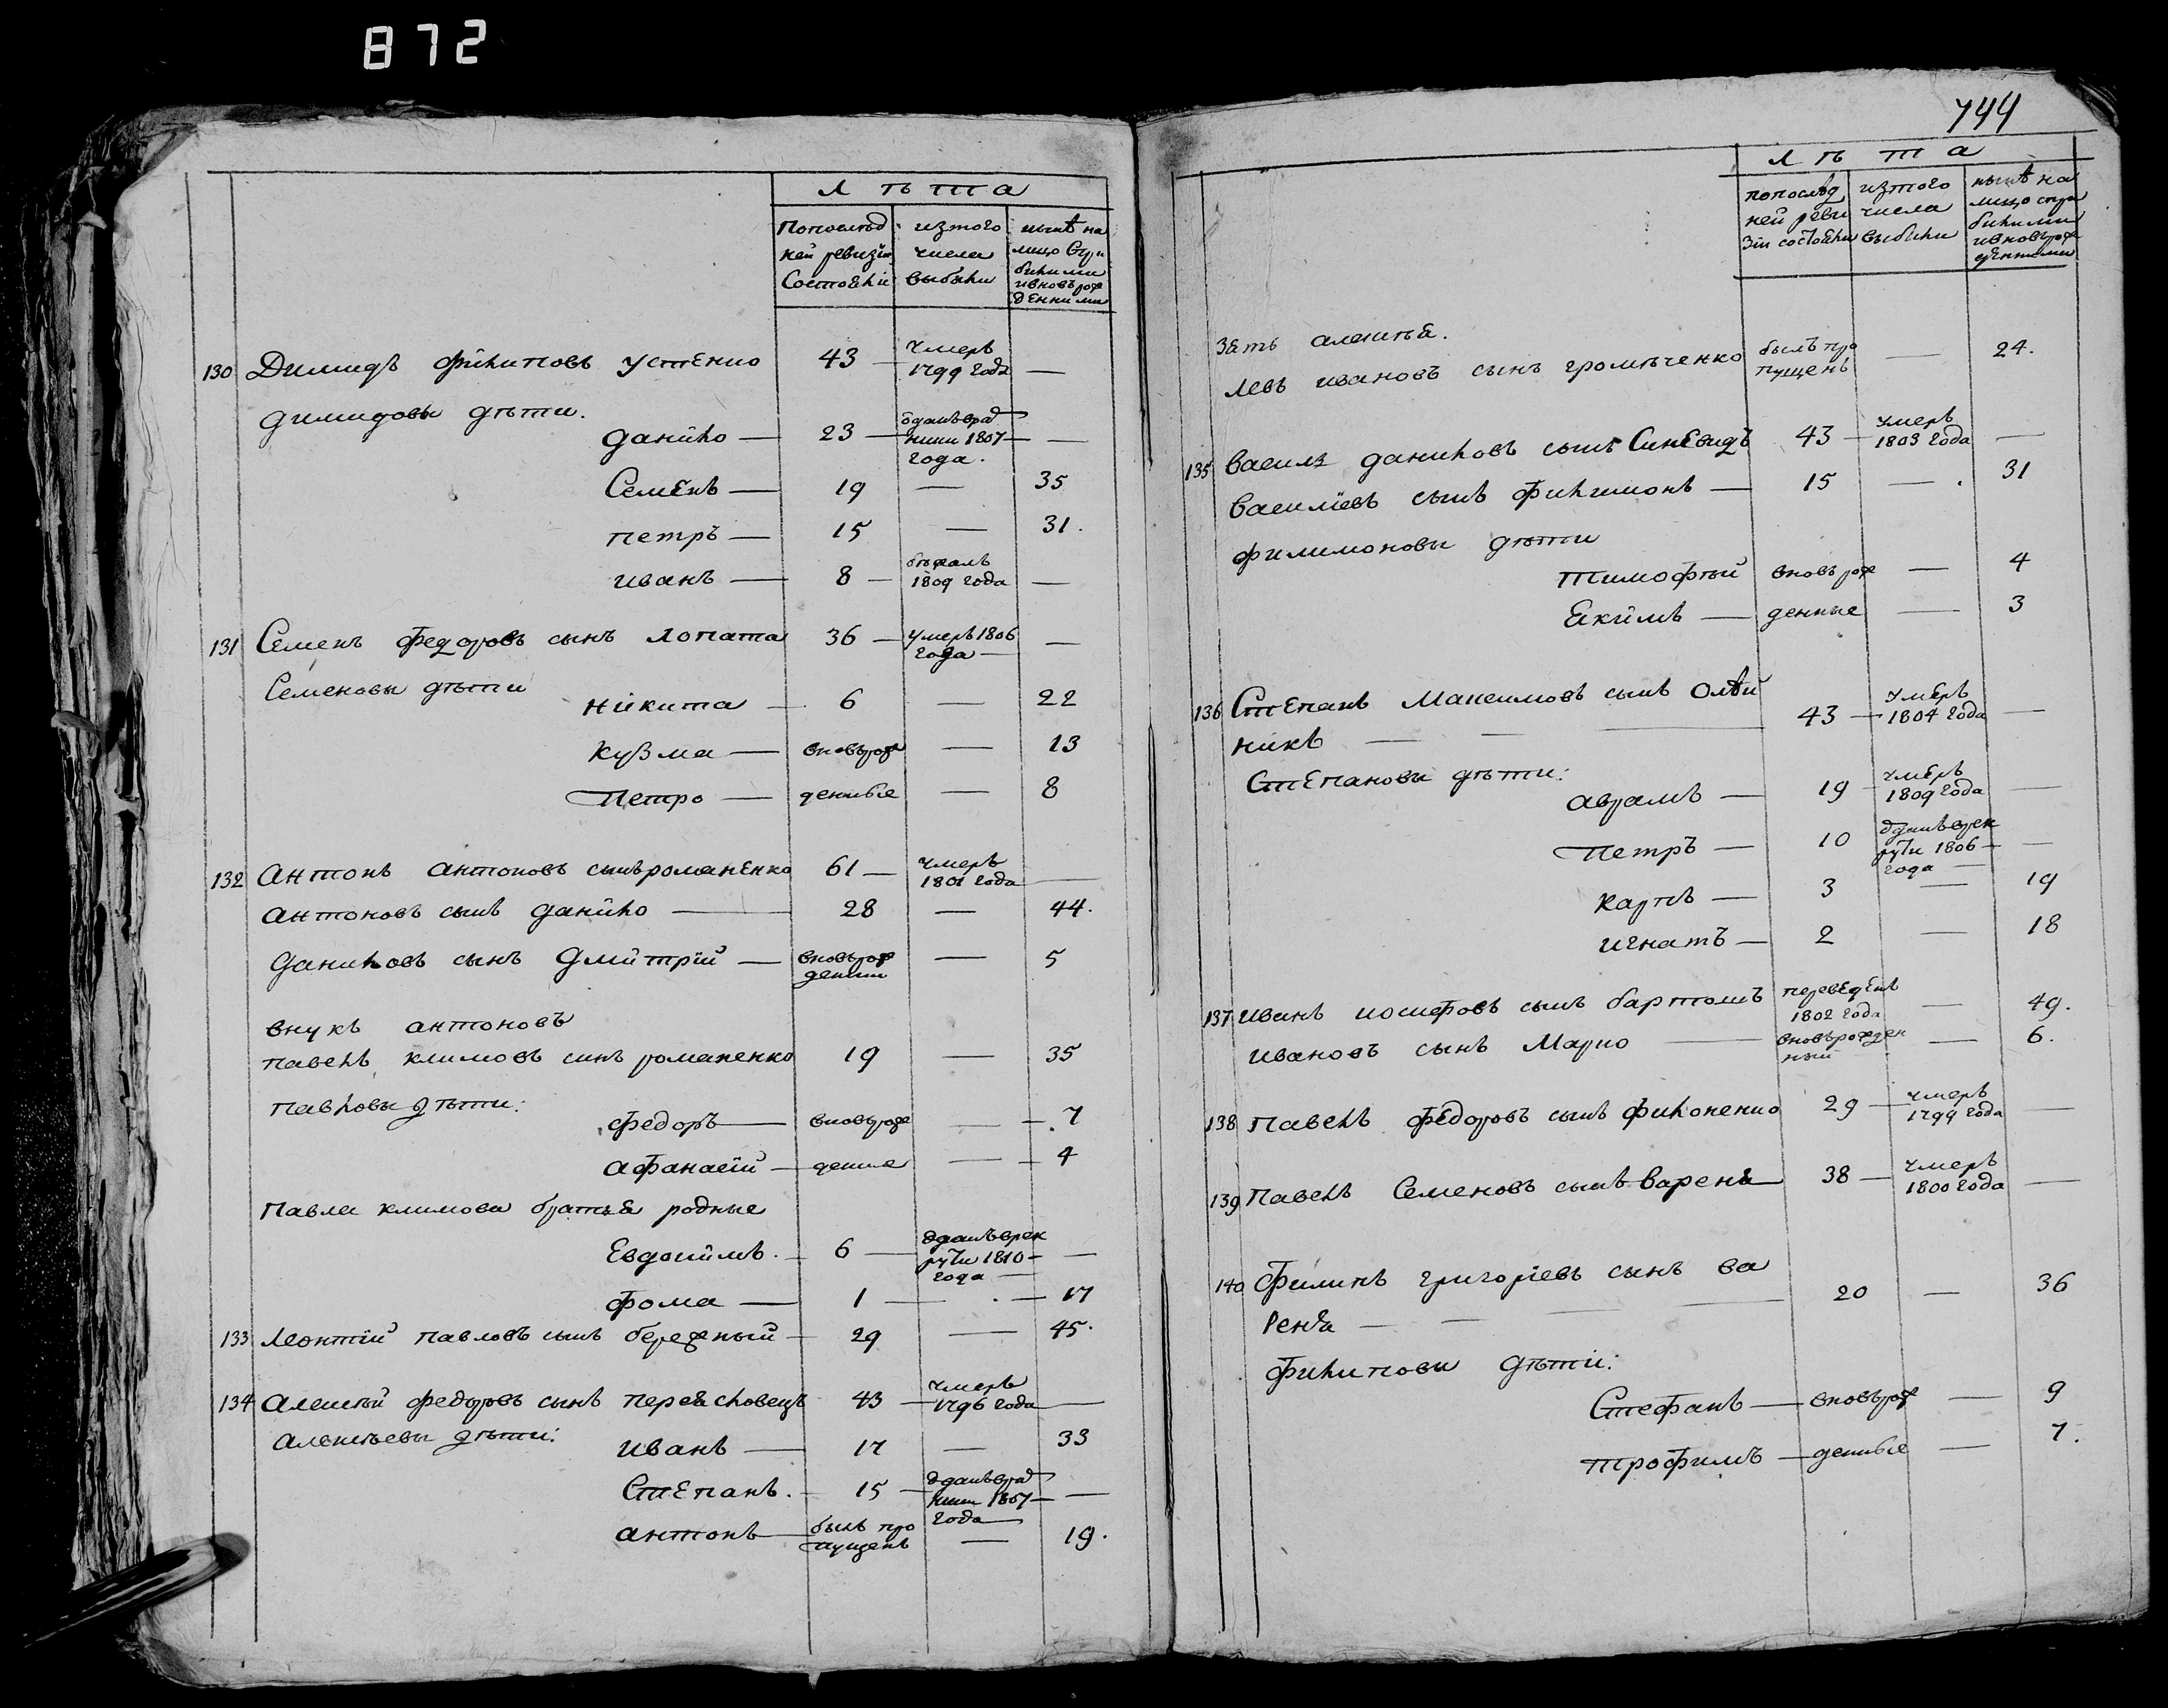 872
лѣта
Попослѣд изтого нынѣ на
ней ревизіи числа лицо
Состояли выбыли
ивновърож
денними
130 Димидъ филиповъ Устенко 43 — умеръ
1799 года —
димидовы дѣти.
данило — 23 —
1807 —
года.
Семенъ — 19 — 35
петръ — 15 — 31.
иванъ — 8 — бѣжалъ
1809 года —
131 Семенъ федоровъ сынъ лопата 36 — умеръ 1806
года — —
Семеновы дѣти
никита — 6 — 22
кузма — вновърож — 13
Петро — денные — 8
132 Антонъ антоновъ сынъ романенко 61 — умеръ
1801 года —
антоновъ сынъ данило — 28 — 44.
даниловъ сынъ дмитрій — вновърож — 5
денни
внукъ антоновъ
павелъ климовъ синъ романенко 19 — 35
павловы дѣти:
федоръ — вновърож — 7
афанасій — денне — 4
Павла климова братья родные
Евдокимъ. — 6 — отданъ врек
руты 1810 —
года —
фома — 1 — 17
133 Леонтій павловъ сынъ бережный — 29 — 45.
134 алексѣй федоровъ сынъ переясловецъ 43 — умеръ
1796 года —
алексѣевы дѣти:
иванъ — 17 — 33
Степанъ. — 15 —
1807 — —
года —
антонъ — былъ про
пущенъ — 19.
744
лѣта
попослѣд изтого нынѣ на
ней реви числа лицо
зіи состояли выбыли
ивновърож
денними
Зять алексѣя.
левъ ивановъ сынъ громѣченко былъ про
пущенъ — 24.
135 василь даниловъ сынъ Синевидъ 43 — умеръ
1803 года —
василіевъ сынъ филимонъ — 15 — 31
филимоновы дѣти
тимофѣй вновърож — 4
Екимъ — денные — 3
136 Степанъ Максимовъ сынъ олѣй
никъ — — 43 — умеръ
1804 года —
Степановы дѣти:
аврамъ — 19 умеръ
1809 года —
Петръ — 10 отданъ врек
руты 1806 —
года —
карпъ — 3 — 19
игнатъ — 2 — 18
137 иванъ иосифовъ сынъ бартошъ переведенъ
1802 года — 49.
ивановъ сынъ Марко — вновърожден
ный — 6.
138 павелъ федоровъ сынъ филоненко 29 — умеръ
1799 года —
139 павелъ Семеновъ сынъ вареня 38 — умеръ
1800 года —
140 филипъ григоріевъ сынъ ва
реня — — 20 — 36
филипови дѣти:
Стефанъ — вновърож — 9
трофимъ — денные — 7.